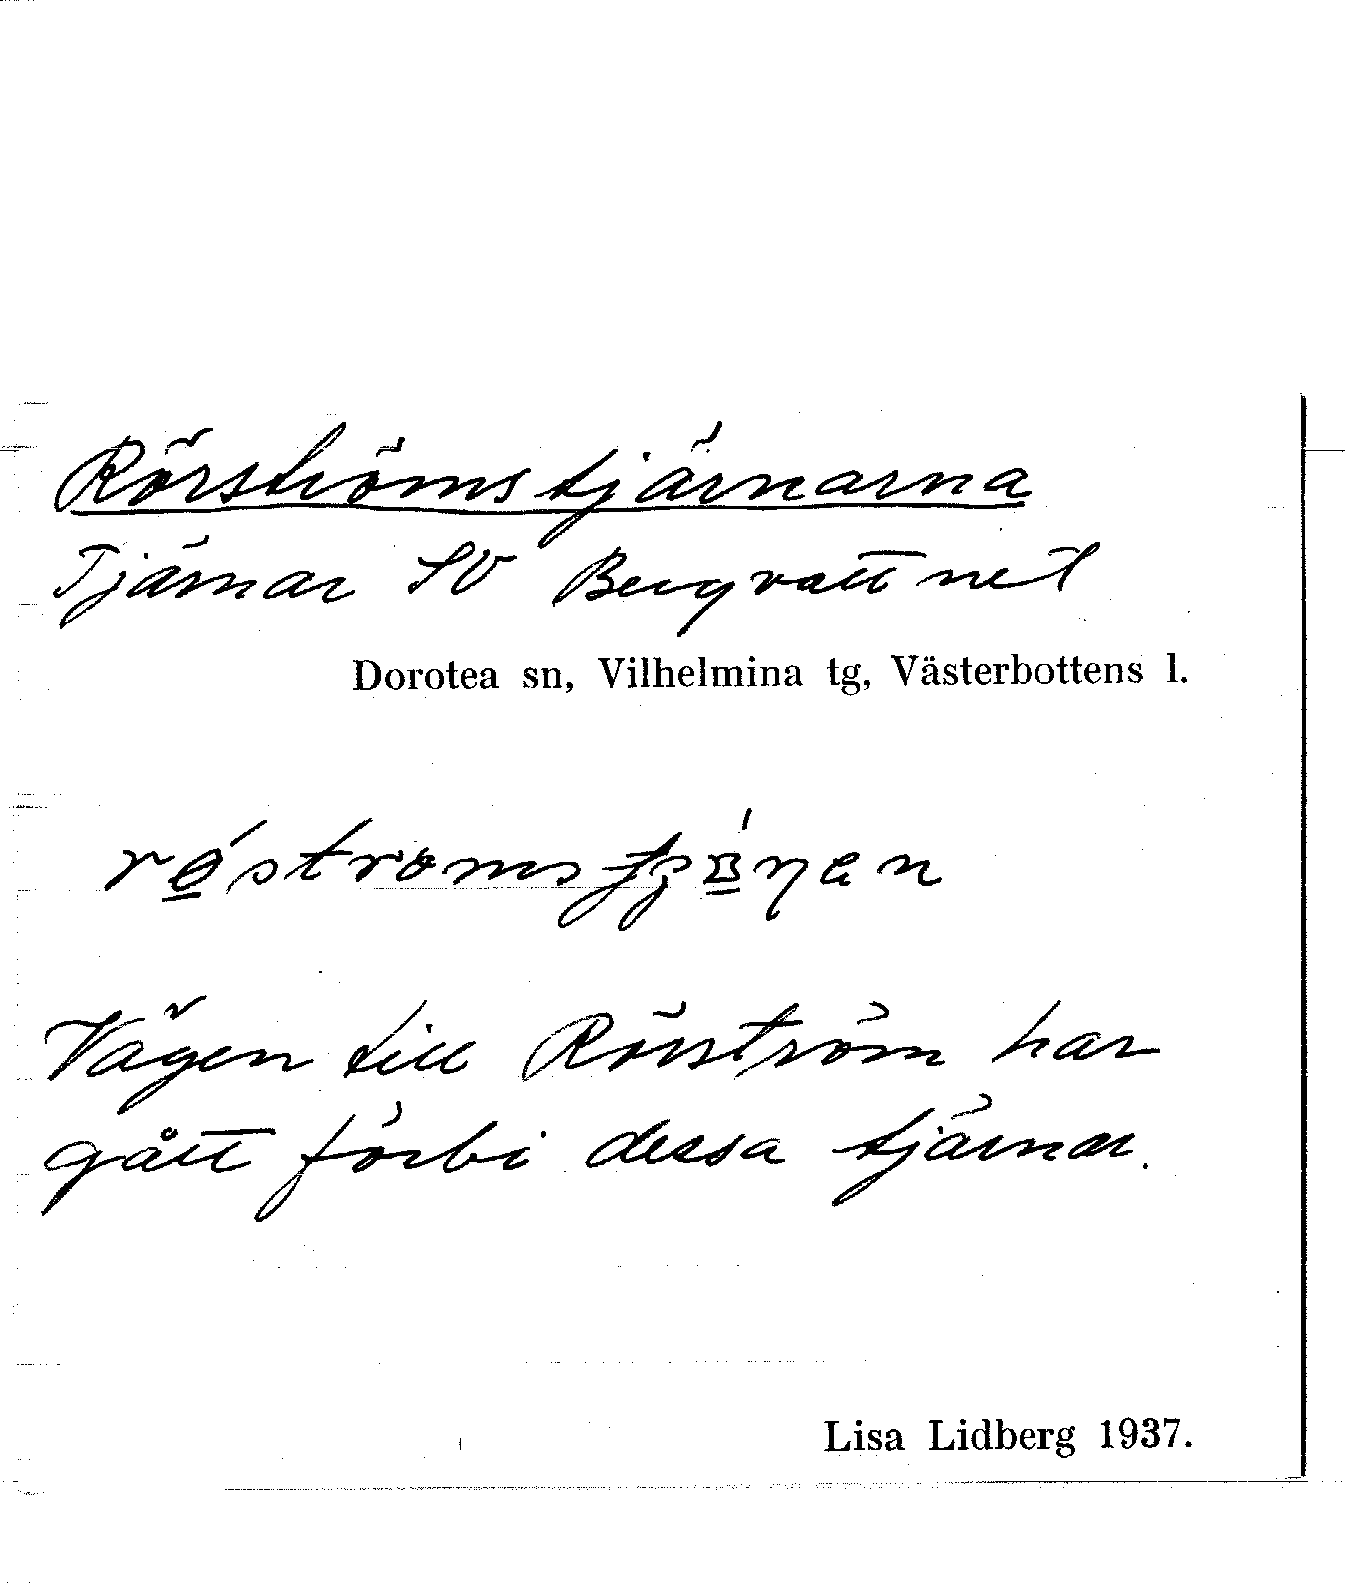 Rörströmstjärnarna
Tjärnar SV Bergvattnet
Dorotea sn, Vilhelmina tg, Västerbottens l.
Vägen till Rörström har
gått förbi dessa tjärnar.
Lisa Lidberg 1937.